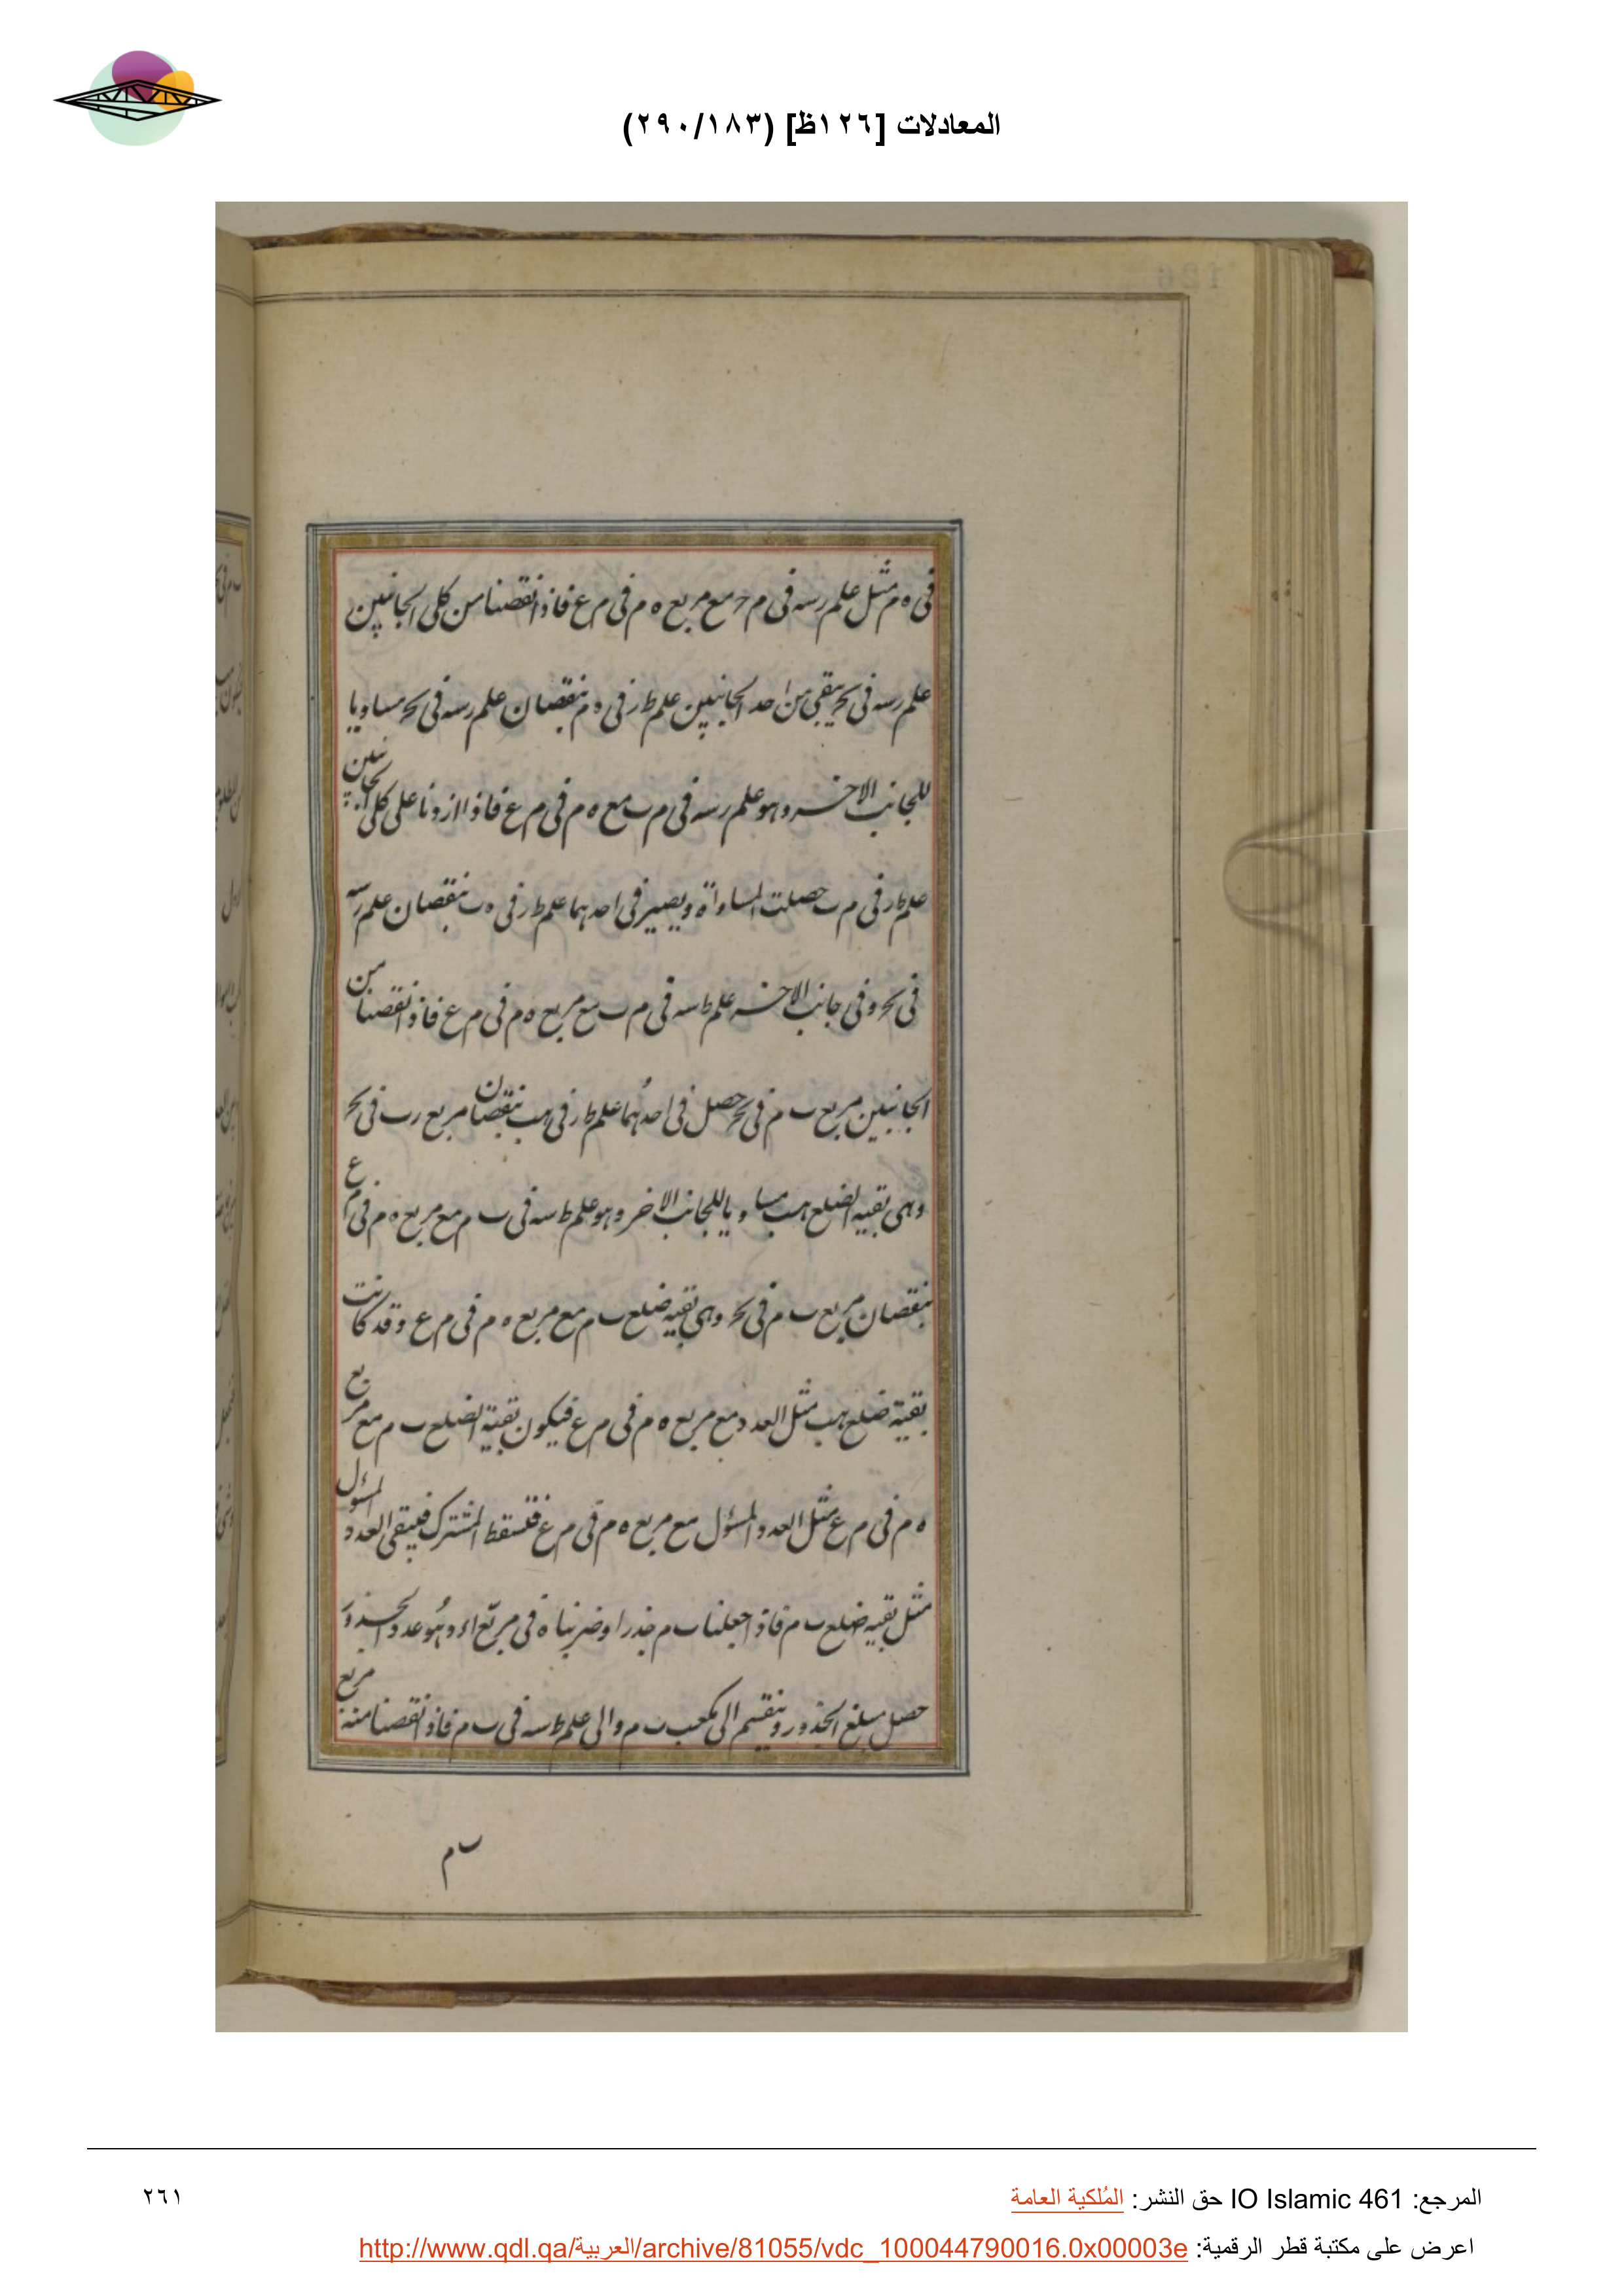 المعادلات [١٢٦ظ] (٢٩٠/١٨٣)
فى ه م مثل علم رسه فى م ح مع مربع ه م فى م ع فاذا نقصنا من كلى الجانبين
علم رسه فى بح يبقى من احد الجانبين علم طر فى ه م بنقصان علم رسه فى بح مساويا
للجانب الاخر وهو علم رسه فى م ب مع ه م فى م ع فاذا ازدنا على كلى الجانبين
علم طر فى م ب حصلت المساواة ويصير فى احدهما علم طر فى ه ب بنقصان علم رسه
فى بح وفى جانب الاخر علم ط سه فى م ب مع مربع ه م فى م ع فاذا نقصنا من
الجانبين مربع ب م فى بح حصل فى احدهما علم طر فى هب بنقصان مربع رب فى بح
وهى بقيه الضلع هب مساويا للجانب الاخر وهو علم ط سه فى ب م مع مربع ه م فى م ع
بنقصان مربع ب م فى بح وهى بقيه ضلع ب م مع مربع ه م فى م ع وقد كانت
بقية ضلع هب مثل العدد مع مربع ه م فى م ع فيكون بقية الضلع ب م مع مربع
ه م فى م ع مثل العدد المسؤل مع مربع ه م فى م ع فتسقط المشترك فيبقى العدد المسؤل
مثل بقيه ضلع ب م فاذا جعلنا ب م جذرا وضربناه فى مربع اء وهو عدد الجذور
حصل مبلغ الجذور وينقسم الى مكعب ب م والى علم ط سه فى ب م فاذا نقصنا منه مربع
ب م
المرجع: IO Islamic 461 حق النشر: المُلكية العامة
٢٦١
اعرض على مكتبة قطر الرقمية: http://www.qdl.qa/العربية/archive/81055/vdc_100044790016.0x00003e